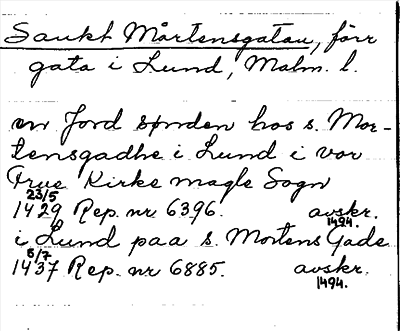 Sankt Mårtensgatan, förr
gata i Lund, Malm. l.
en Jord sønden hos s. Mor-
tensgadhe i Lund i vor
Frue Kirke magle Sogn
23/5
1429 Rep. nr 6396. avskr.
1494.
i Lund paa s. Mortens Gade
5/7
1437 Rep. nr 6885. avskr.
1494.